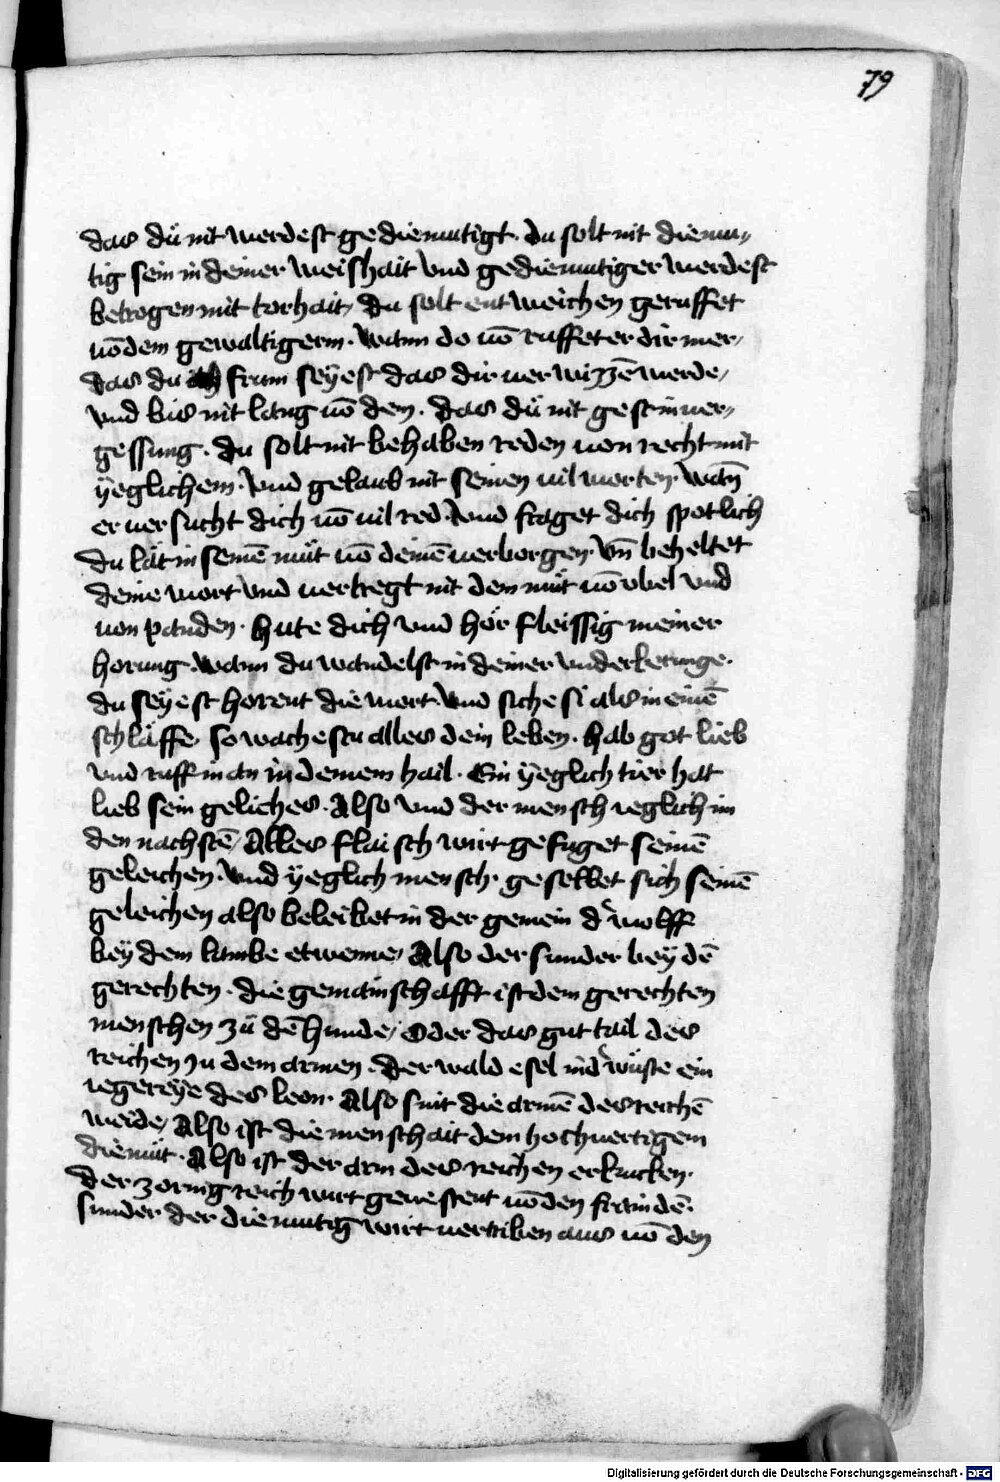 79
das dü nit werdest gediemutigt. du solt nit diemu„
tig sein in deiner weishait vnd gediemutiger werdest
betrogen mit torhait, du solt entweichen geruffet
uōdem gewaltigerm. wann do uō ruffet er dir mer,
das du frum seyest das dir uerwizzē werde,
vnd bis nit lang uō den. das dü nit gest in uer„
gessung. du solt nit behaben reden uon recht mit
yeglichem. vnd gelaub nit seinen uil worten. wañ
er uersucht dich uō uil red. vnd fraget dich spotlich
du lät in seinē müt uō deinē uerborgen. vn̄ beheltet
deine wort vnd uertregt nit dem müt uō vbel vnd
uon panden. hute dich vnd hör fleissig meiner
horung. wann du wandelst in deiner vnderkerunge.
du seyest horent die wort. vnd siche si als in einē
schläffe, so wachestu alles dein leben. hab got lieb
vnd ruff in an in deinem hail. Ein yeglich tier hat
lieb sein geliches. Also vnd der mensch ieglich im
den nachstē, Alles flaisch wirt gefuget seinē
geleichen. vnd yeglich mensch. gesellet sich seinē
geleichen also beleibet in der gemein d' wolff
bey dem lambe etwenne, Also der sunder bey dē
gerechten. die gemainschafft ist dem gerechten
menschen zü dē hunde, Oder das gut tail des
reichen zu dem armen. der wald esel in d' wüste ein
iegereye des leon. Also sint die armē des reichē
weide, Also ist die menschait dem hochuertigem
diemüt. Also ist der arm des reichen erkucken.
der zornig reich wirt geuestent uō den fraindē.
sunder der diemutig wirt uertriben aus uō den
Digitalisierung gefördert durch die Deutsche Forschungsgemeinschaft - DFG